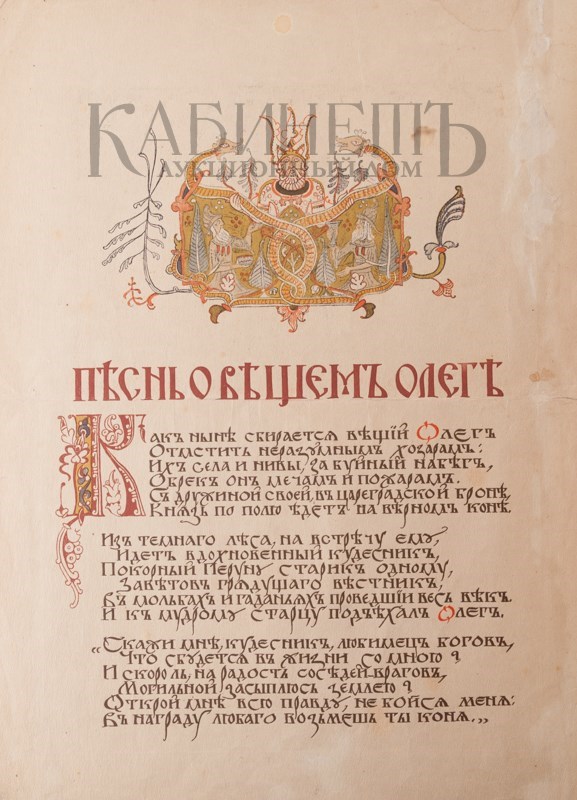 КАБИНЕТЪ
АУКЦИОННЫЙ ДОМ
ПѢСНЬ О ВѢЩЕМЪ ОЛЕГѢ
Какъ нынѣ сбирается вѣщій Олегъ
Отмстить неразумнымъ хозарамъ:
Ихъ села и нивы, за буйный набѣгъ,
Обрекъ онъ мечамъ и пожарамъ.
Съ дружиной своей, въ цареградской бронѣ,
Князь по полю ѣдетъ на вѣрномъ конѣ.
Изъ темнаго лѣса, на встрѣчу ему,
Идетъ вдохновенный кудесникъ,
Покорный Перуну старикъ одному,
Завѣтовъ грядущаго вѣстникъ,
Въ мольбахъ и гаданьяхъ проведшій весь вѣкъ.
И къ мудрому старцу подъѣхалъ Олегъ.
„Скажи мнѣ, кудесникъ, любимецъ боговъ,
Что сбудется въ жизни со мною?
И скоро ль, на радость сосѣдей-враговъ,
Могильной засыплюсь землею?
Открой мнѣ всю правду, не бойся меня:
Въ награду любаго возьмешь ты коня.„